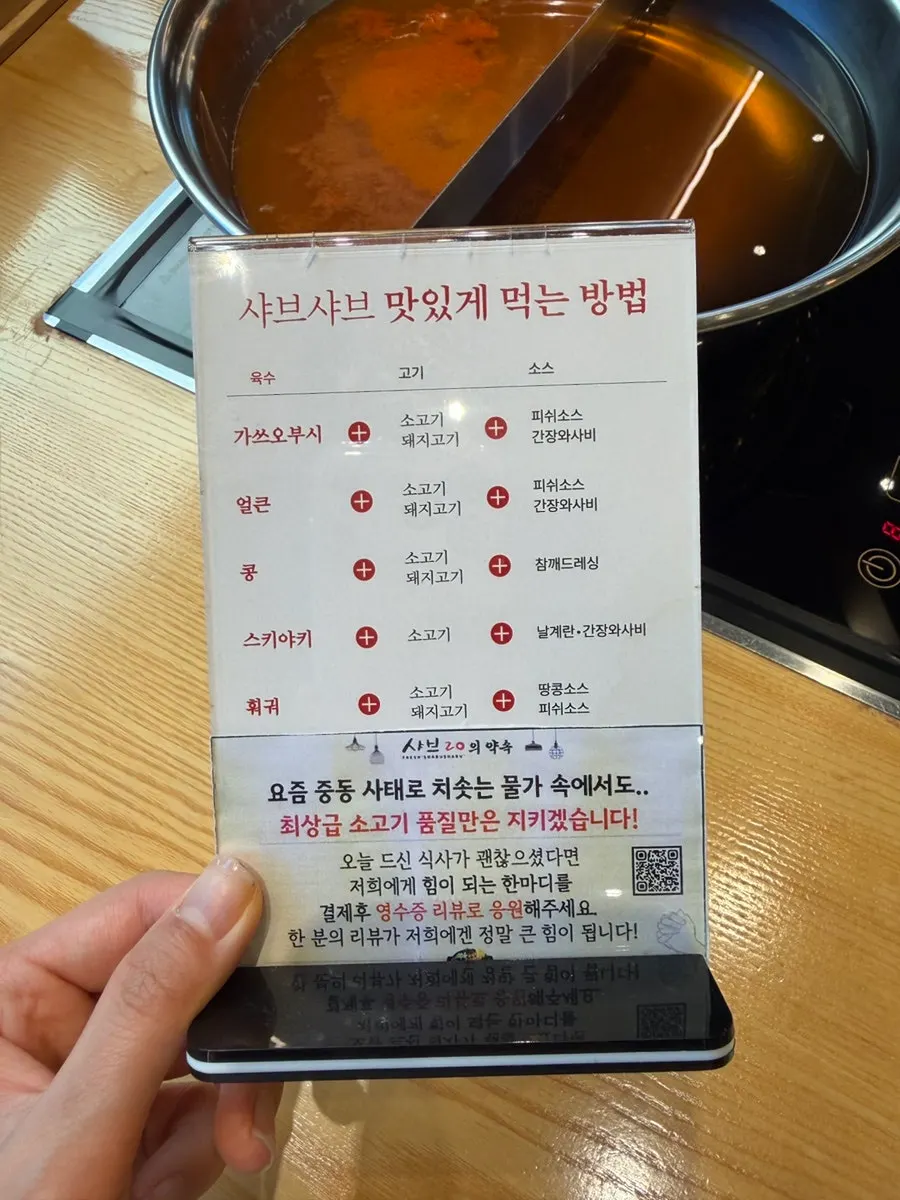 샤브샤브 맛있게 먹는 방법
육수 고기 소스
가쓰오부시 + 소고기 돼지고기 + 피쉬소스 간장와사비
얼큰 + 소고기 돼지고기 + 피쉬소스 간장와사비
콩 + 소고기 돼지고기 + 참깨드레싱
스키야키 + 소고기 + 날계란•간장와사비
훠궈 + 소고기 돼지고기 + 땅콩소스 피쉬소스
샤브20의 약속
FRESH SHABUSHABU
요즘 중동 사태로 치솟는 물가 속에서도..
최상급 소고기 품질만은 지키겠습니다!
오늘 드신 식사가 괜찮으셨다면
저희에게 힘이 되는 한마디를
결제후 영수증 리뷰로 응원해주세요.
한 분의 리뷰가 저희에겐 정말 큰 힘이 됩니다!